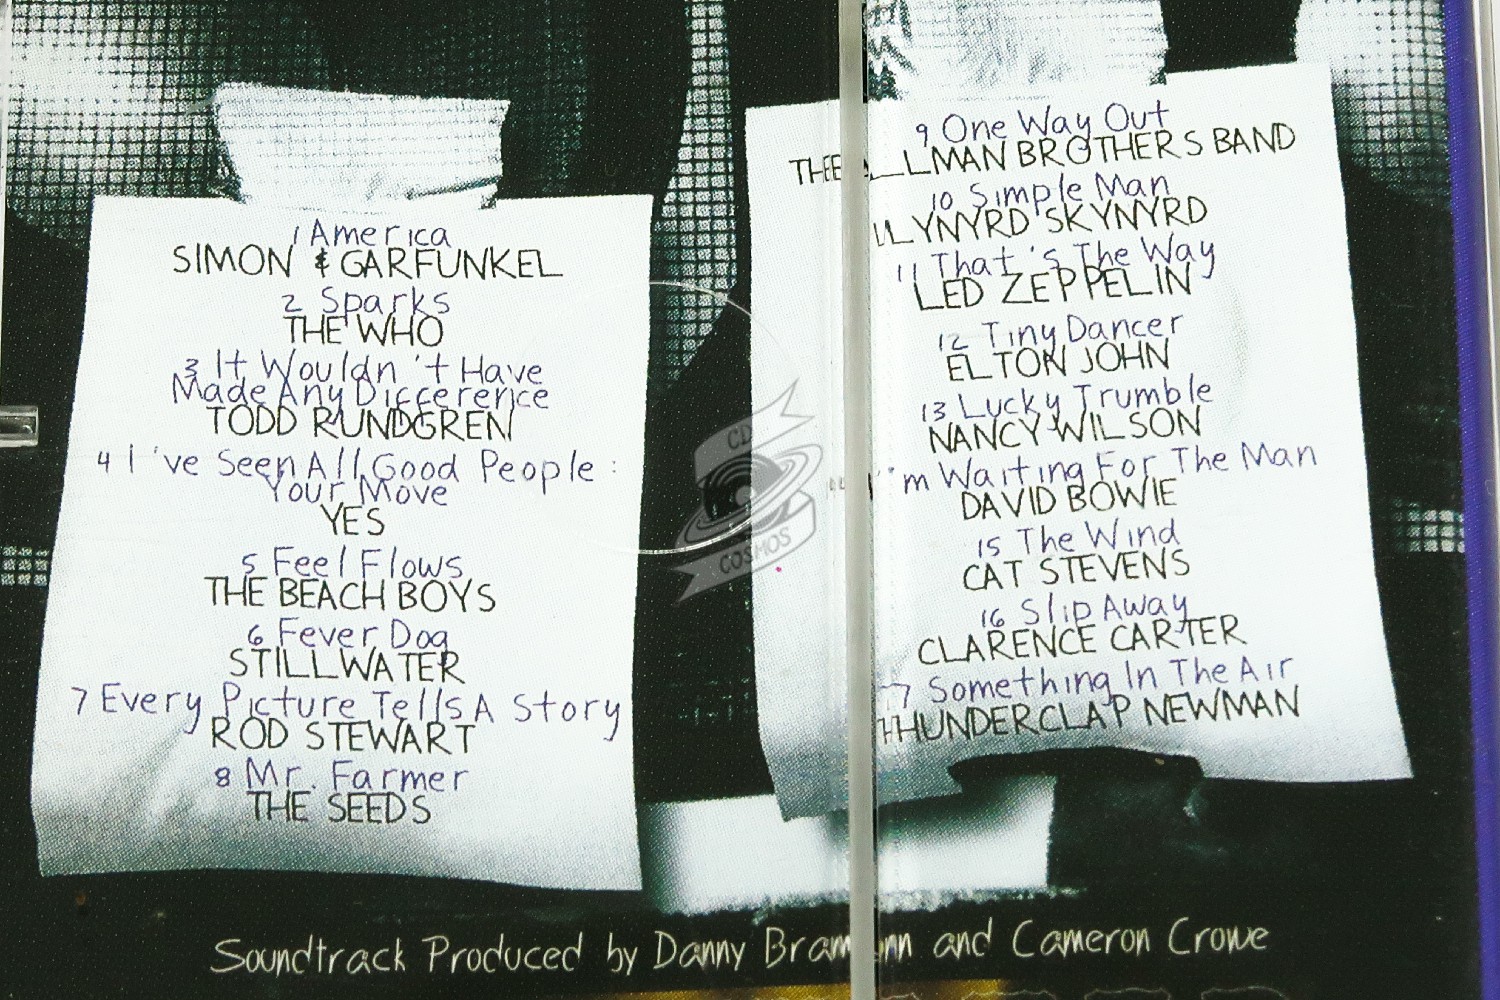 1 America
SIMON & GARFUNKEL
2 Sparks
THE WHO
3 It Wouldn't Have
Made Any Difference
TODD RUNDGREN
4 I've Seen All Good People:
Your Move
YES
5 Feel Flows
THE BEACH BOYS
6 Fever Dog
STILLWATER
7 Every Picture Tells A Story
ROD STEWART
8 Mr. Farmer
THE SEEDS
9 One Way Out
THE ALLMAN BROTHERS BAND
10 Simple Man
LYNYRD SKYNYRD
11 That's The Way
LED ZEPPELIN
12 Tiny Dancer
ELTON JOHN
13 Lucky Trumble
NANCY WILSON
I'm Waiting For The Man
DAVID BOWIE
15 The Wind
CAT STEVENS
16 Slip Away
CLARENCE CARTER
17 Something In The Air
THUNDERCLAP NEWMAN
CD
COSMOS
Soundtrack Produced by Danny Bramson and Cameron Crowe